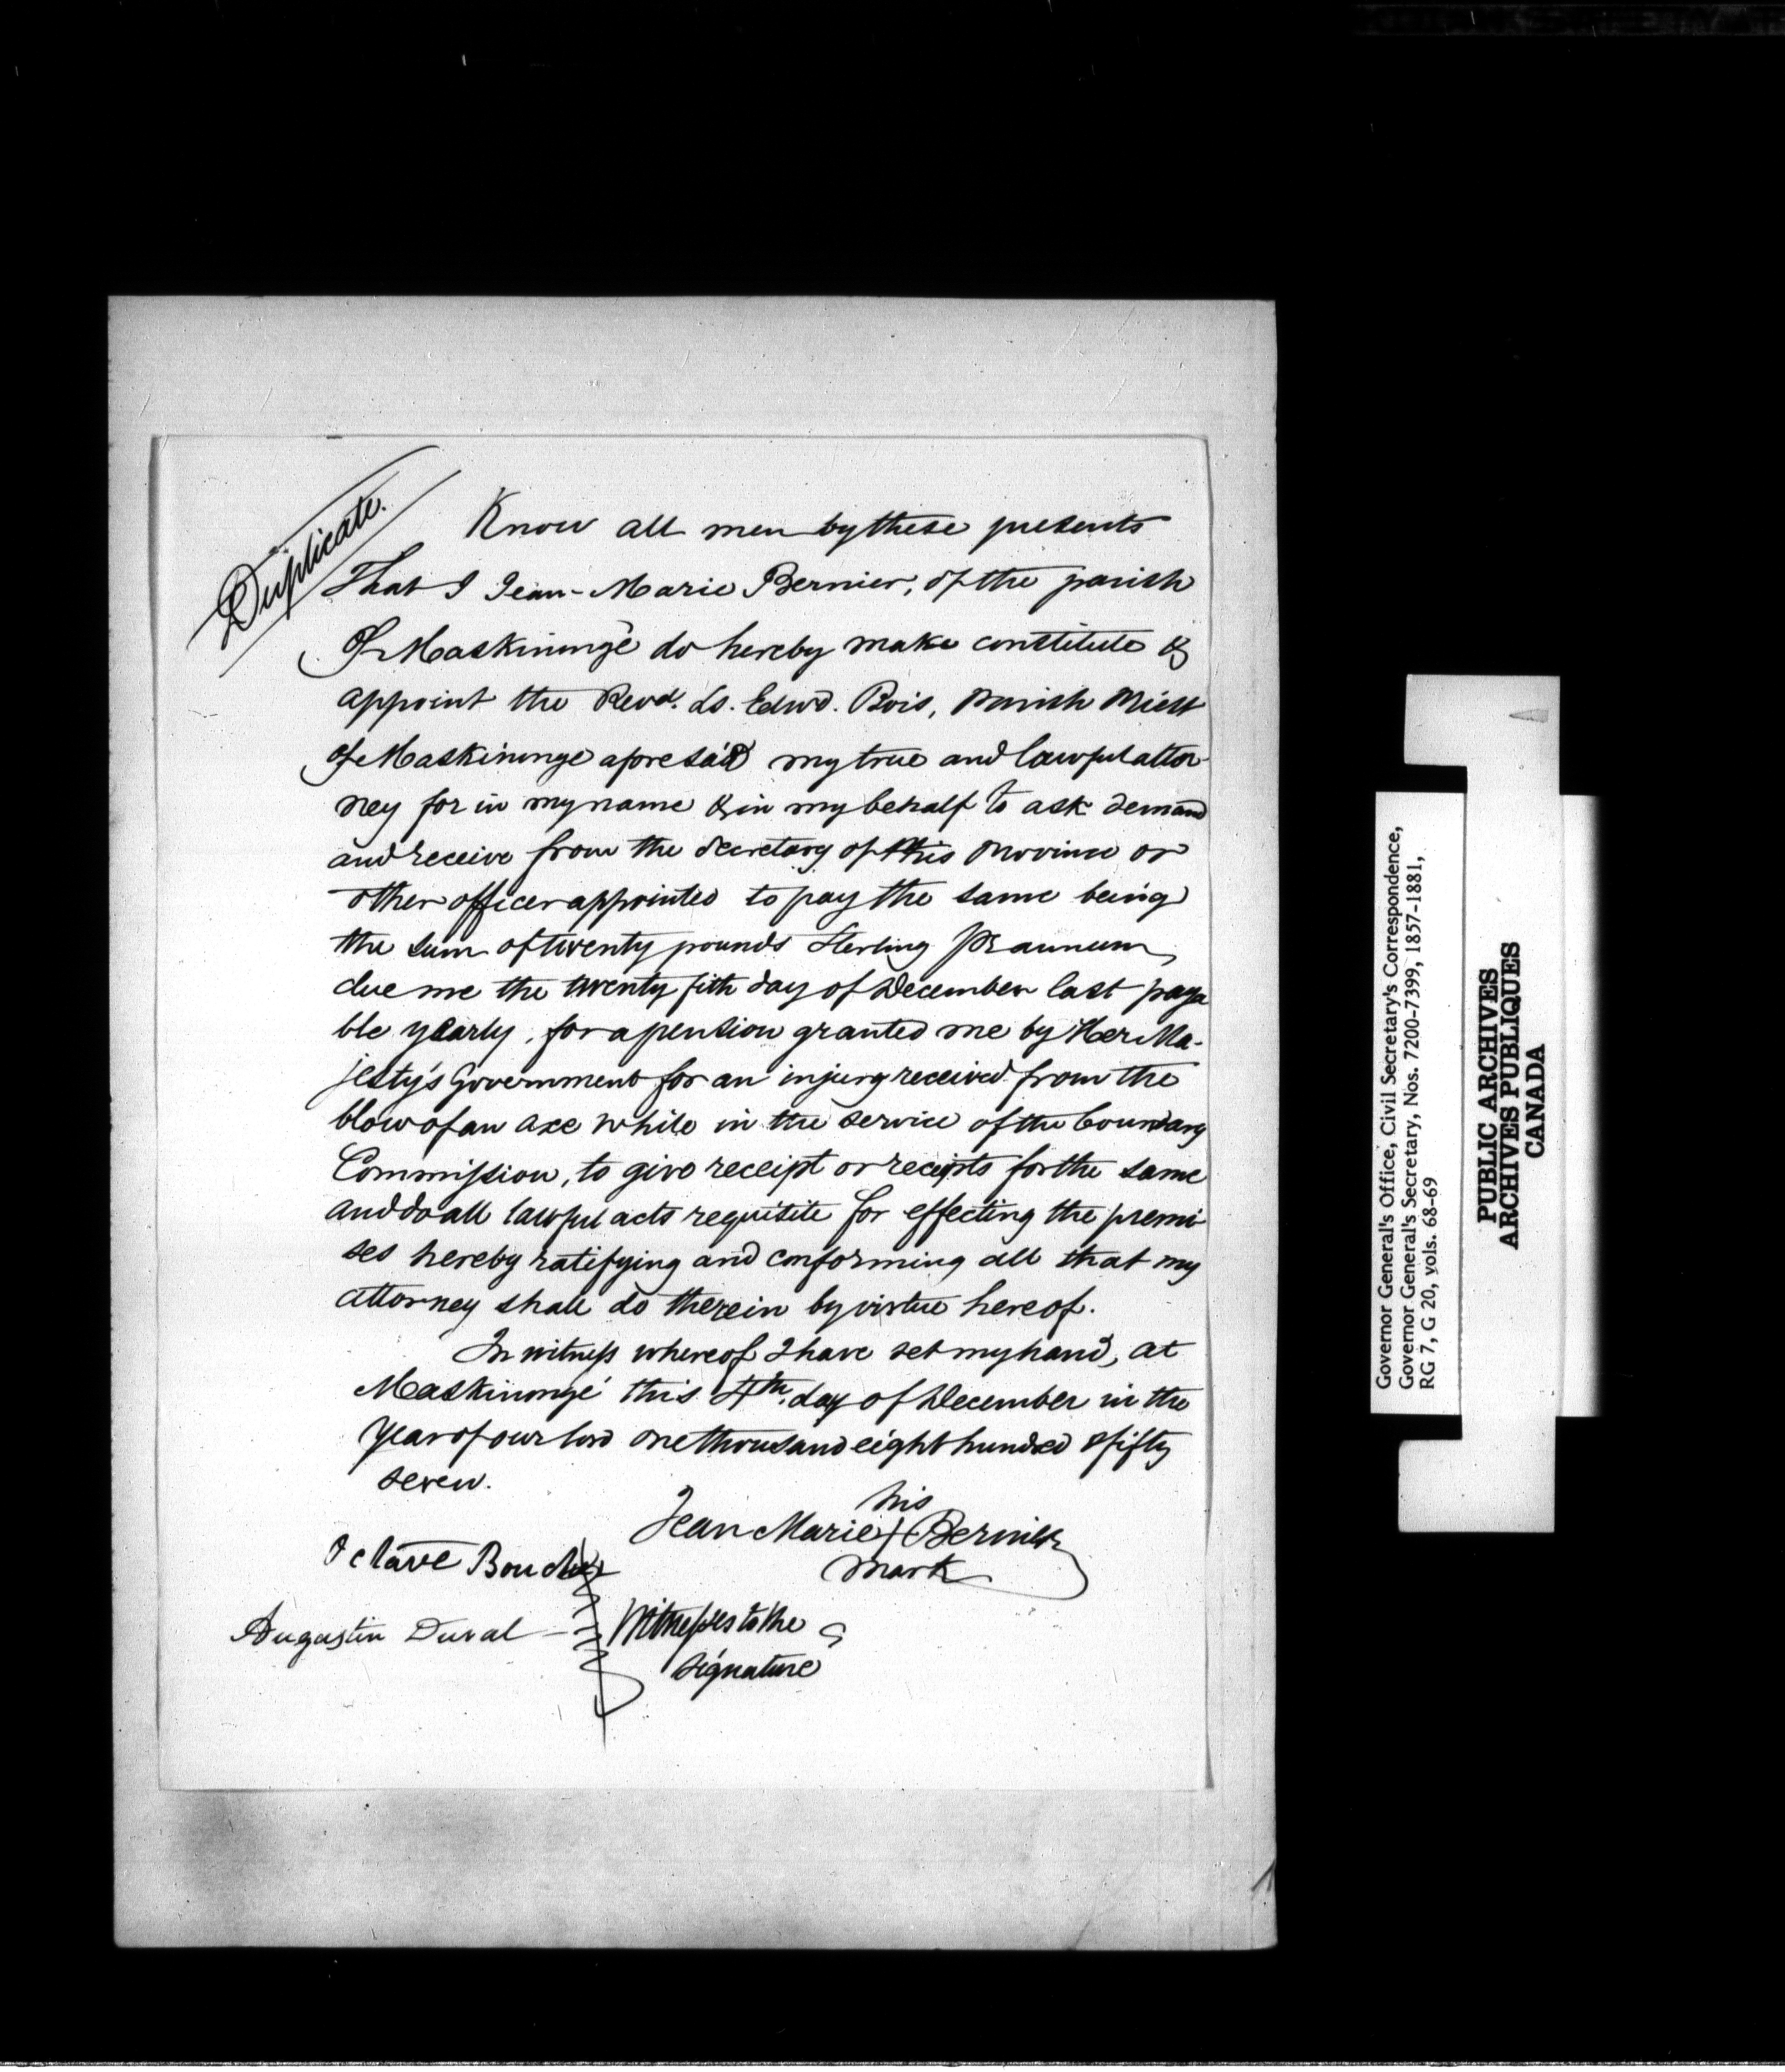 Duplicate.
Know all men by these presents
That I Jean-Marie Bernier, of the parish
Of Maskinongé do hereby make constitute &
appoint the Revd. Ls. Edwd. Bois, Parish Priest
of Maskinonge aforesaid my true and lawful attor-
ney for in my name & in my behalf to ask demand
and receive from the Secretary of this Province or
other officer appointed to pay the same being
the sum of twenty pounds Sterling pr annum,
due me the twenty fith day of December last paya
ble yearly, for a pension granted me by Her Ma-
jesty's Government for an injury received from the
blow of an axe while in the service of the Boundary
Commission, to give receipt or receipts for the same
and do all lawful acts requisite for effecting the premi-
ses hereby ratifying and conforming all that my
attorney shall do therein by virtue hereof.
In witness whereof I have set my hand, at
Maskinongé this 4th. day of December in the
year of our lord one thousand eight hundred & fifty
seven.
his
Jean Marie + Bernier
mark
Octave Boucher
Augustin Duval
Witnesses to the
signature
Governor General's Office, Civil Secretary's Correspondence,
Governor General's Secretary, Nos. 7200-7399, 1857-1881,
RG 7, G 20, vols. 68-69
PUBLIC ARCHIVES
ARCHIVES PUBLIQUES
CANADA